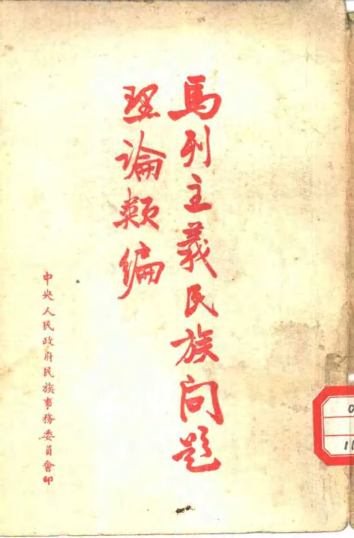 馬列主義民族问題
理論類編
中央人民政府民族事務委員會印